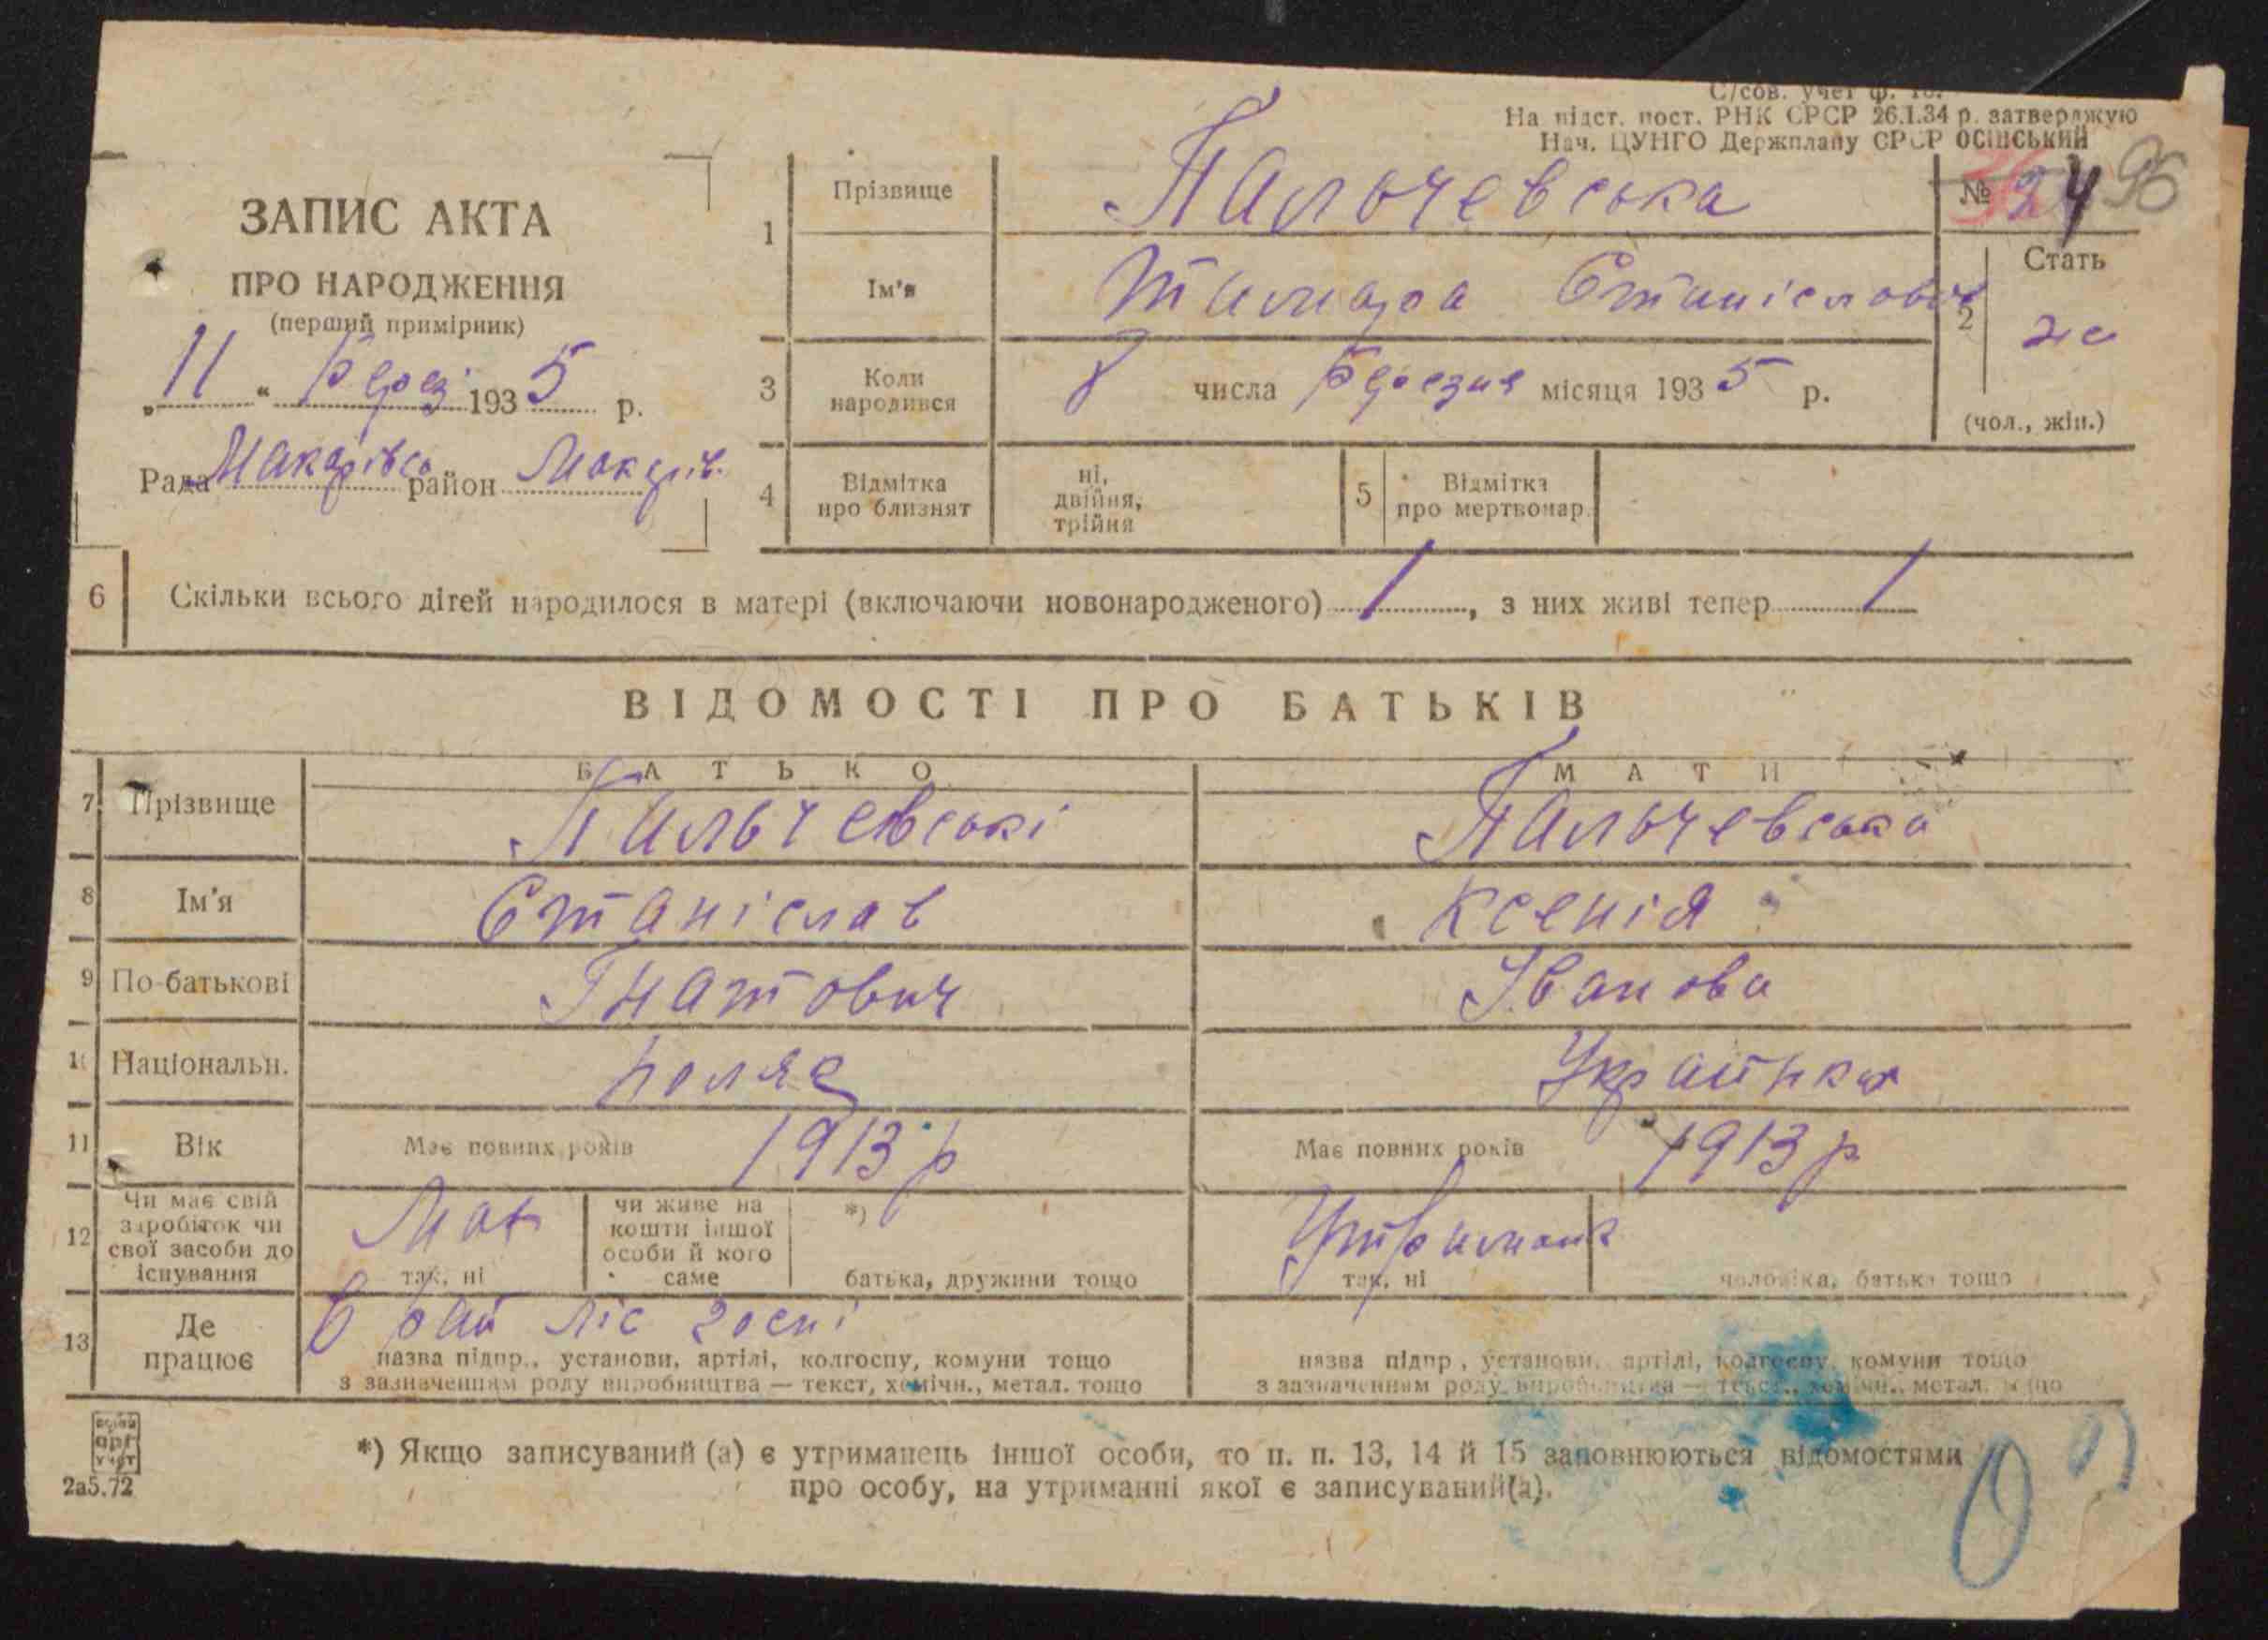 С/сов. учет ф. 10.
На підст. пост. РНК СРСР 26.1.34 р. затверджую
Нач. ЦУНГО Держплану СРСР ОСІНСЬКИЙ
ЗАПИС АКТА
ПРО НАРОДЖЕННЯ
(перший примірник)
„ 11 “ Берез 1935 р.
Рада Макарівсь район Макарів.
1 Прізвище Пальчевська
№ 24 96
Ім'я Тамара Станіславів
2 Стать ж
(чол., жін.)
3 Коли народився 8 числа Березня місяця 1935 р.
4 Відмітка про близнят ні, двійня, трійня
5 Відмітка про мертвонар.
6 Скільки всього дітей народилося в матері (включаючи новонародженого) 1, з них живі тепер 1
ВІДОМОСТІ ПРО БАТЬКІВ
БАТЬКО МАТИ
7 Прізвище Пальчевські Пальчевська
8 Ім'я Станіслав Ксенія
9 По-батькові Гнатович Іванова
10 Національн. поляк Українка
11 Вік Має повних років 1913 р Має повних років 1913 р
12 Чи має свій заробіток чи свої засоби до існування Має так, ні
чи живе на кошти іншої особи й кого саме *) батька, дружини тощо
Утриманк так, ні чоловіка, батька тощо
13 Де працює В рай ліс госпі
назва підпр., установи, артілі, колгоспу, комуни тощо назва підпр., установи, артілі, колгоспу, комуни тощо
з зазначенням роду виробництва — текст, хемічн., метал. тощо з зазначенням роду виробництва — текст., хемічн., метал. тощо
2а5.72
*) Якщо записуваний (а) є утриманець іншої особи, то п. п. 13, 14 й 15 заповнюються відомостями
про особу, на утриманні якої є записуваний(а).